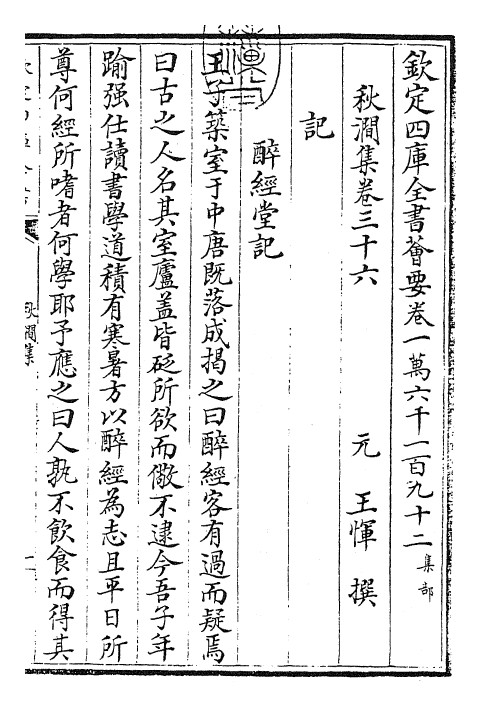 欽定四庫全書薈要卷一萬六千一百九十二集部
秋澗集卷三十六　元　王惲　撰
記
醉經堂記
王子築室于中唐既落成掲之曰醉經客有過而疑焉
曰古之人名其室廬盖皆砭所欲而儆不逮今吾子年
踰强仕讀書學道積有寒暑方以醉經為志且平日所
尊何經所嗜者何學耶予應之曰人孰不飲食而得其
秋澗集